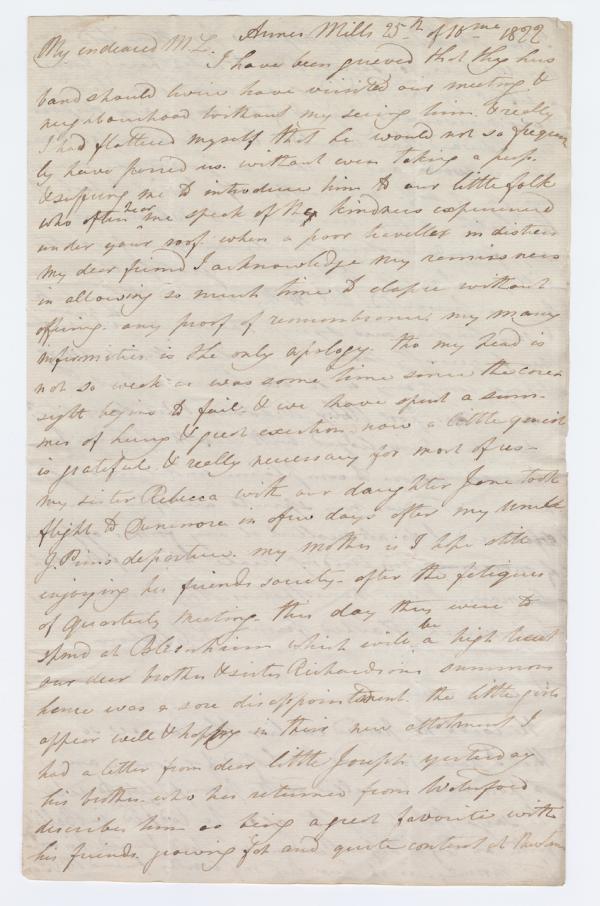 Anner Mills 25th of 10me 1822
My endeared M L.
I have been grieved that thy hus
band should twice have visited our meeting &
neighbourhood without my seeing him. & really
I had flattered myself that he would not so frequent
ly have passed us without even taking a peep.
& suffering me to introduce him to our little folk
who often hear me speak of the kindness experienced
under your roof when a poor traveller in distress
my dear friend I acknowledge my remissness
in allowing so much time to elapse without
offering any proof of remembrance, my many
infirmities is the only apology. tho my head is
not so weak as was some time since tho
sight begins to fail & we have spent a sum-
mer of hurry & great exertion now a little quiet
is grateful & really necessary for most of us-
my sister Rebecca with our daughter Jane took
flight to Dunmore in a few days after my Uncle
J. Pim's departure. my mother is I hope still
enjoying her friends society- after the fatigues
of Quarterly Meeting. this day they were to
spend at Blenheim which will be a high treat
our dear brother & sister Richardsons summons
hence was a sore disappointment. the little girls
appear well & happy in their new allotment I
had a letter from dear little Joseph yesterday
his brother who has returned from Waterford
describes him as being a great favorite with
his friends growing fat and quite content at